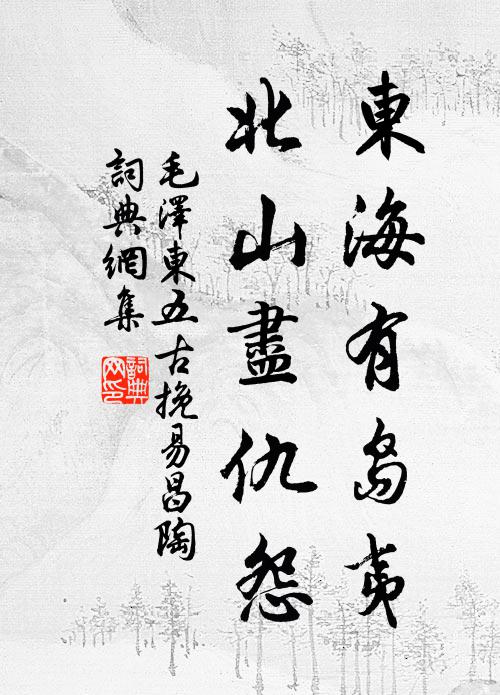 東海有島夷
北山盡仇怨
毛澤東五古挽易昌陶
詞典網集
詞典
网印